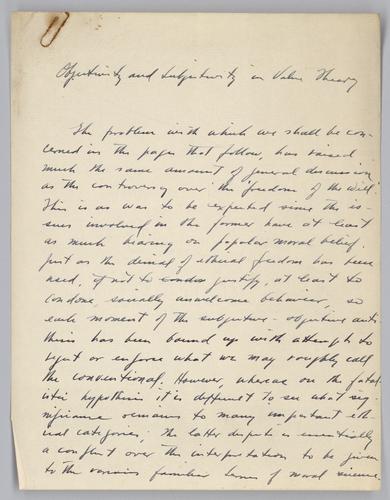 Objectivity and Subjectivity in Value Theory
The problem with which we shall be con-
cerned in the pages that follow, has raised
much the same amount of general discussion
as the controversy over the freedom of the will.
This is as was to be expected since the is-
sues involved in the former have at least
as much bearing on popular moral belief.
Just as the denial of ethical freedom has been
used, if not to condon justify, at least to
condone, socially unwelcome behavior, so
each moment of the subjective-objective anti-
thesis has been bound up with attempts to
reject or enforce what we may roughly call
the conventional. However, whereas on the fatal-
istic hypothesis it is difficult to see what sig-
nificance remains to many important eth-
ical categories, the latter dispute is essentially
a conflict over the interpretation to be given
to the various familiar terms of moral science